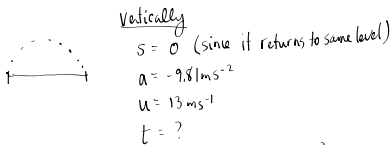 Vertically
s = 0 (since it returns to same level)
a = -9.81ms⁻²
u = 13 ms⁻¹
t = ?